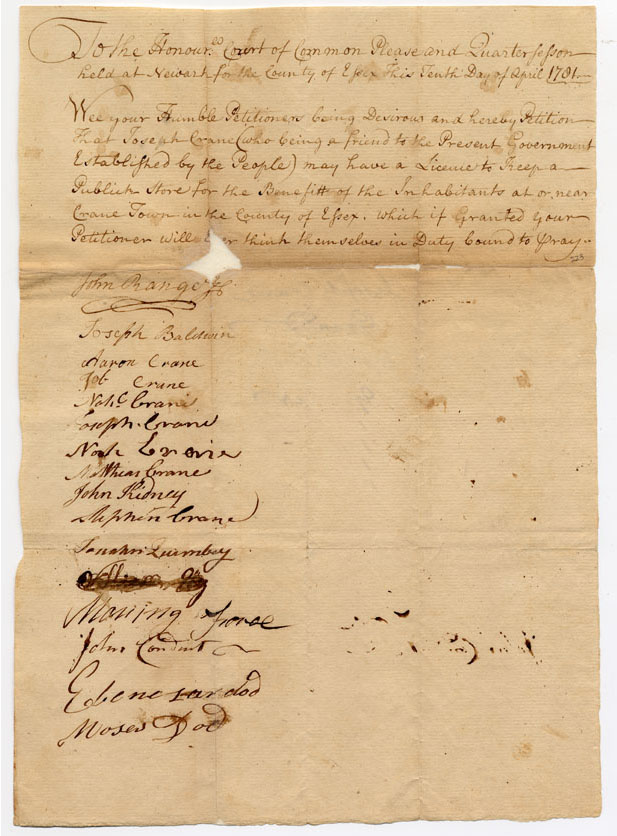 To the Honour.ed Court of Common Please and Quartersesson
held at Newark for the County of Essex This Tenth Day of April 1781
Wee your Humble Petitioners being Desirous and hereby Petition
That Joseph Crane (who being a friend to the Present Government
Established by the People) may have a Licence to Keep a
Publick Store for the Benefitt of the Inhabitants at or near
Crane Town in the County of Essex. Which if Granted your
Petitioner will Ever think themselves in Duty bound to Pray
John Range
Joseph Baldwin
Aaron Crane
Job Crane
Nath.l Crane
Joseph Crane
Noah Crane
Matthias Crane
John Kidney
Stephen Crane
Jonathn Quimbey
William
John Condict
Ebenesar dod
Moses Dod